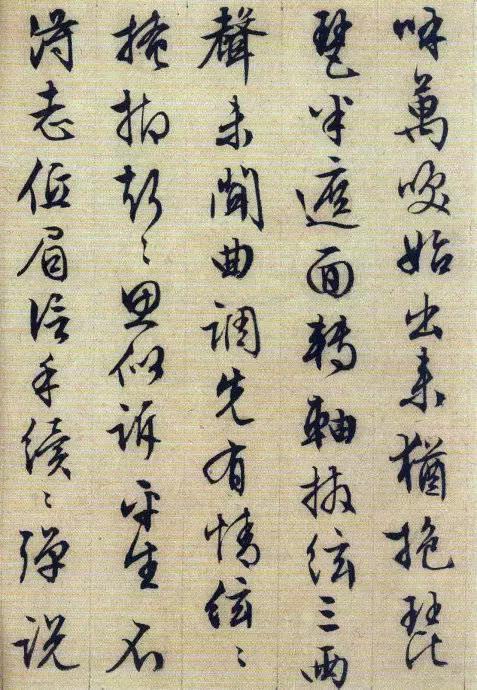 呼萬喚始出来猶抱琵
琶半遮面轉軸撥絃三兩
聲未聞曲調先有情絃〻
掩抑聲〻思似訴平生不
得志低眉信手續〻彈說